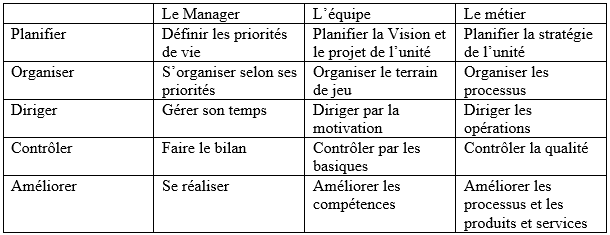 Le Manager L’équipe Le métier
Planifier Définir les priorités Planifier la Vision et Planifier la stratégie
de vie le projet de l’unité de l’unité
Organiser S’organiser selon ses Organiser le terrain Organiser les
priorités de jeu processus
Diriger Gérer son temps Diriger par la Diriger les
motivation opérations
Contrôler Faire le bilan Contrôler par les Contrôler la qualité
basiques
Améliorer Se réaliser Améliorer les Améliorer les
compétences processus et les
produits et services